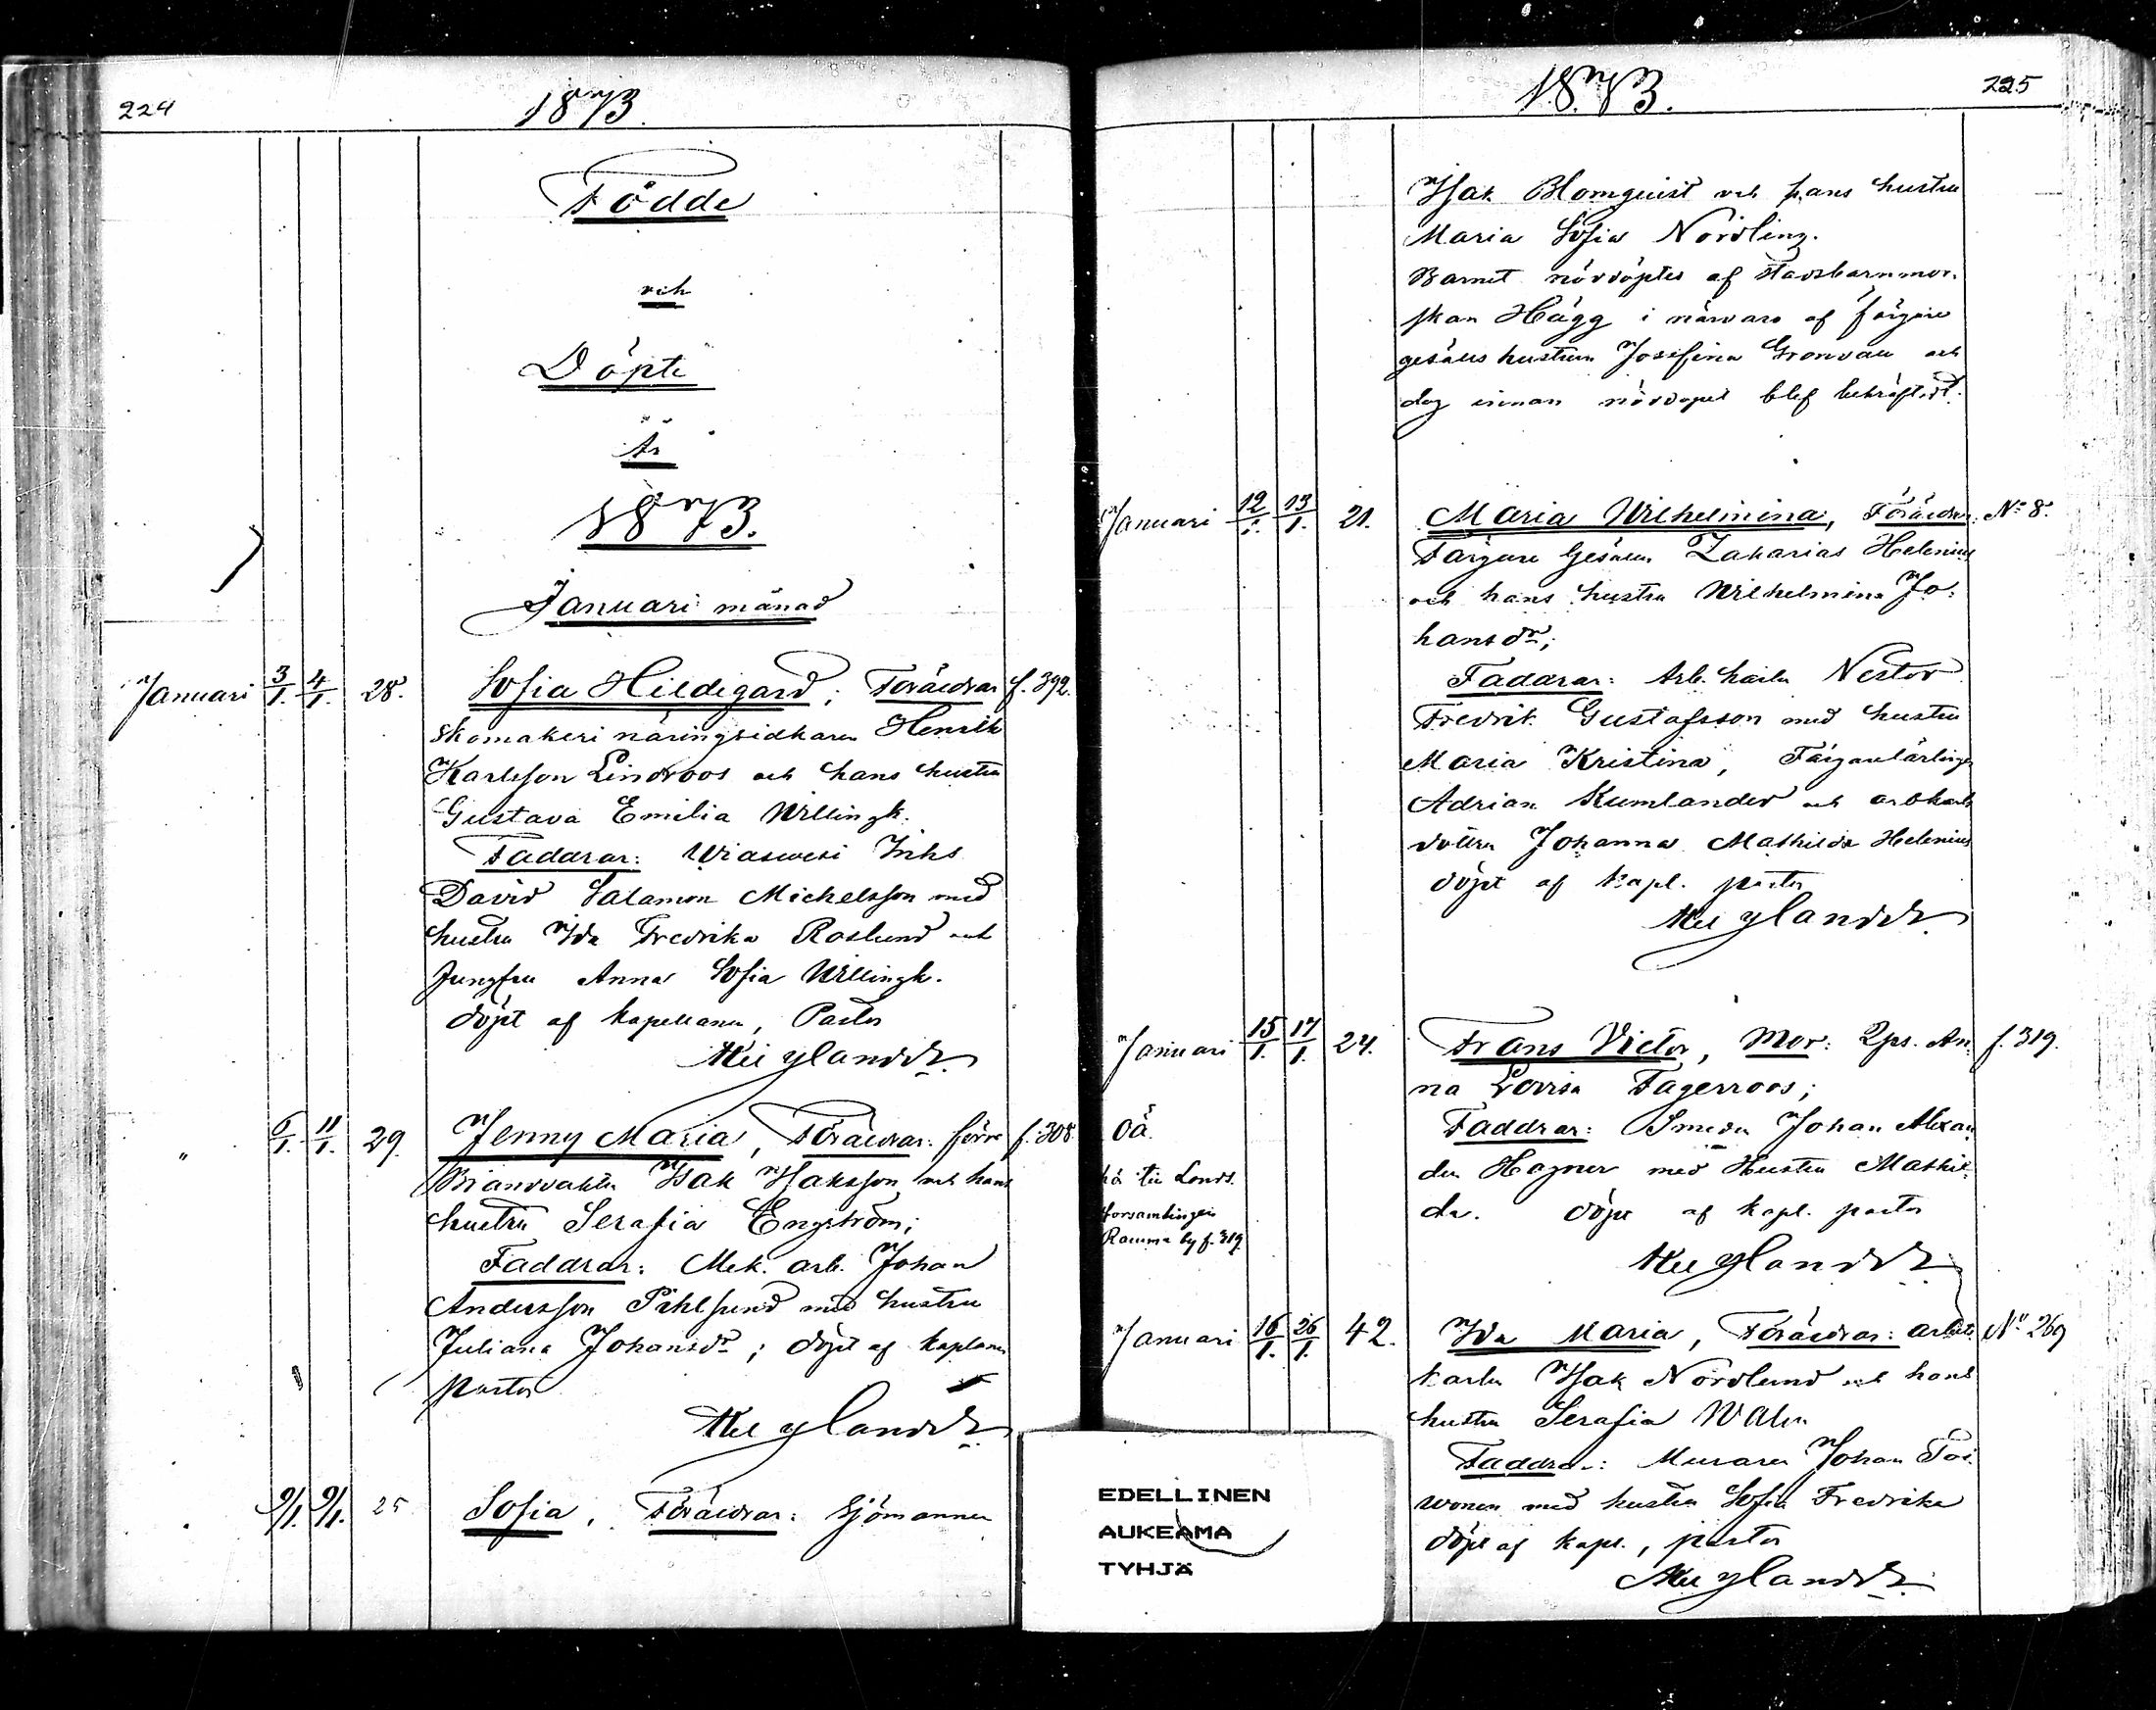 224
1873.
Födde
och
Döpte
År
1873.
Januari månad
Januari 3/1. 4/1. 28. Sofia Hildegard; Föräldrar f. 392.
Skomakeri näringsidkaren Henrik
Karlsson Lindroos och hans hustru
Gustava Emilia Willingk.
Faddrar: Inhs
David Salamon Michelsson med
hustru Ida Fredrika Roslund och
Jungfru Anna Sofia Willingk.
döpt af kapellanen, Pastor
Nylander
" 6/1. 11/1. 29. Jenny Maria, Föräldrar: förre f. 308
Brandvakten Isak Isaksson och hans
hustru Serafia Engström;
Faddrar: Mek. arb. Johan
Andersson Pihlsund med hustru
Juliana Johansdr; döpt af kaplanen
pastor
Nylander
9/1. 9/1. 25 Sofia, Föräldrar: Sjömannen
1873.
225
Isak Blomquist och hans hustru
Maria Sofia Nordling.
Barnet nöddöptes af stadsbarnmor-
skan Hägg i närvaro af färgare
gesälls hustrun Josefina Grönvall och
dog innan nöddopet blef bekräftadt.
Januari 12/1. 13/1. 21. Maria Wilhelmina, Föräldrar: No 8.
Färgare Gesällen Zakarias Helenius
och hans hustru Wilhelmina Jo-
hansdr;
Faddrar: Arb. karlen Nestor
Fredrik Gustafsson med hustru
Maria Kristina, Färgarelärlingen
Adrian Kumlander och arbkarls
dottren Johanna Mathilda Helenius
döpt af kapl. pastor
Nylander
Januari 15/1. 17/1. 24. Frans Victor, Mor: Qps. An- f. 319.
na Lovisa Fagerroos;
Oä. Faddrar: Smeden Johan Alexan
der Hagner med Hustru Mathil-
da. döpt af kapl. pastor
Nylander
till Lands.
församlingen
Rauma by f. 319
Januari 16/1. 26/1. 42. Ida Maria, Föräldrar: arbets No 269
karlen Isak Nordlund och hans
hustru Serafia Walen
Faddrar: Muraren Johan Toi-
wonen med hustru Sofia Fredrika
döpt af kapl., pastor
Nylander
EDELLINEN
AUKEAMA
TYHJÄ